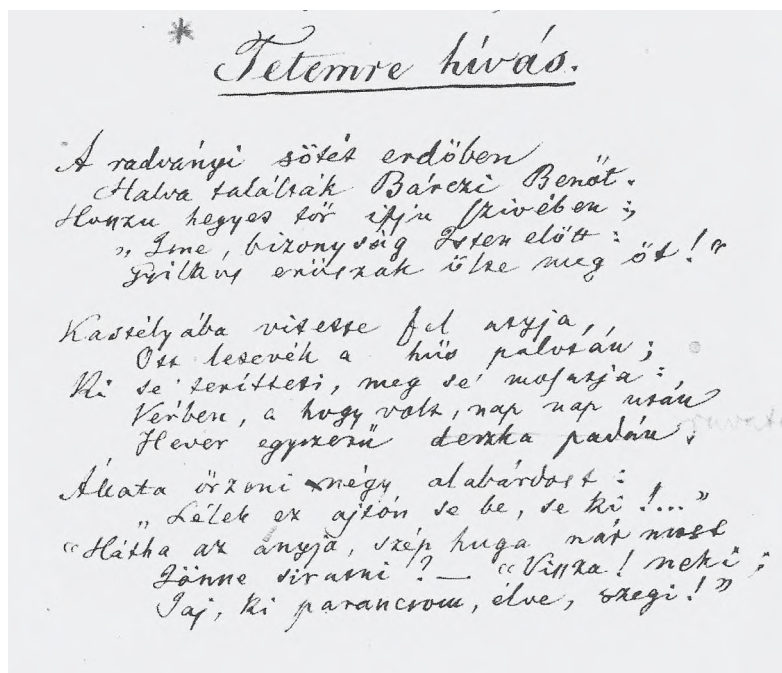 Tetemre hívás.
A radványi sötét erdőben
Halva találták Bárczi Benőt.
Hosszu hegyes tőr ifju szivében;
„Ime, bizonyság Isten előtt:
Gyilkos erőszak ölte meg őt!"
Kastélyába vitette fel atyja,
Ott letevék a hüs palotán;
Ki se' terítteti, meg se' mosatja:
Vérben, a hogy volt, nap nap után
Hever egyszerű deszka padán.
Állata őrzeni négy alabárdost:
„Lélek ez ajtón se be, se ki!..."
"Hátha az anyja, szép huga már most
Jönne siratni? — "Vissza! neki;
Jaj, ki parancsom, élve, szegi!"